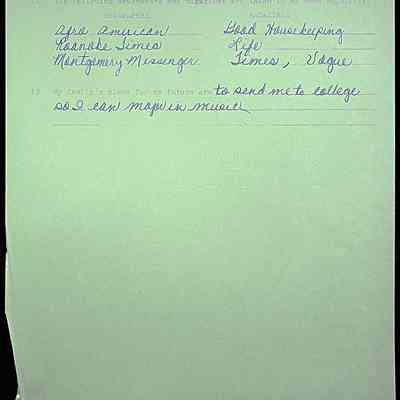 The following newspapers and magazines are taken in my home regularly:
Newspapers Magazines
Afro American Good Housekeeping
Roanoke Times Life
Montgomery Messenger Times, Vogue
13. My family's plans for my future are to send me to college
so I can major in music